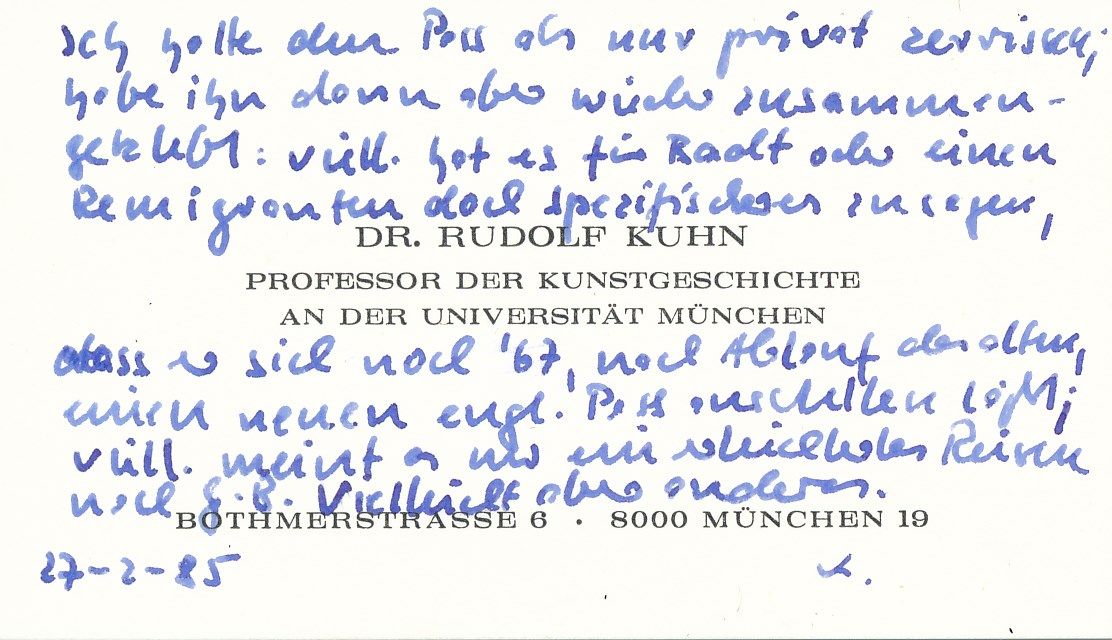 Ich hatte den Pass als nur privat zerrissen,
habe ihn dann aber wieder zusammen-
geklebt: viell. hat es für Raabt oder einen
Remigranten doch spezifischeres zu sagen,
DR. RUDOLF KUHN
PROFESSOR DER KUNSTGESCHICHTE
AN DER UNIVERSITÄT MÜNCHEN
dass er sich noch '67, nach Ablauf des alten,
einen neuen engl. Pass ausstellen läßt;
viell. meint es nur ein erleichtertes Reisen
nach G.B. Vielleicht aber anderes.
BOTHMERSTRASSE 6 · 8000 MÜNCHEN 19
27-2-85 K.